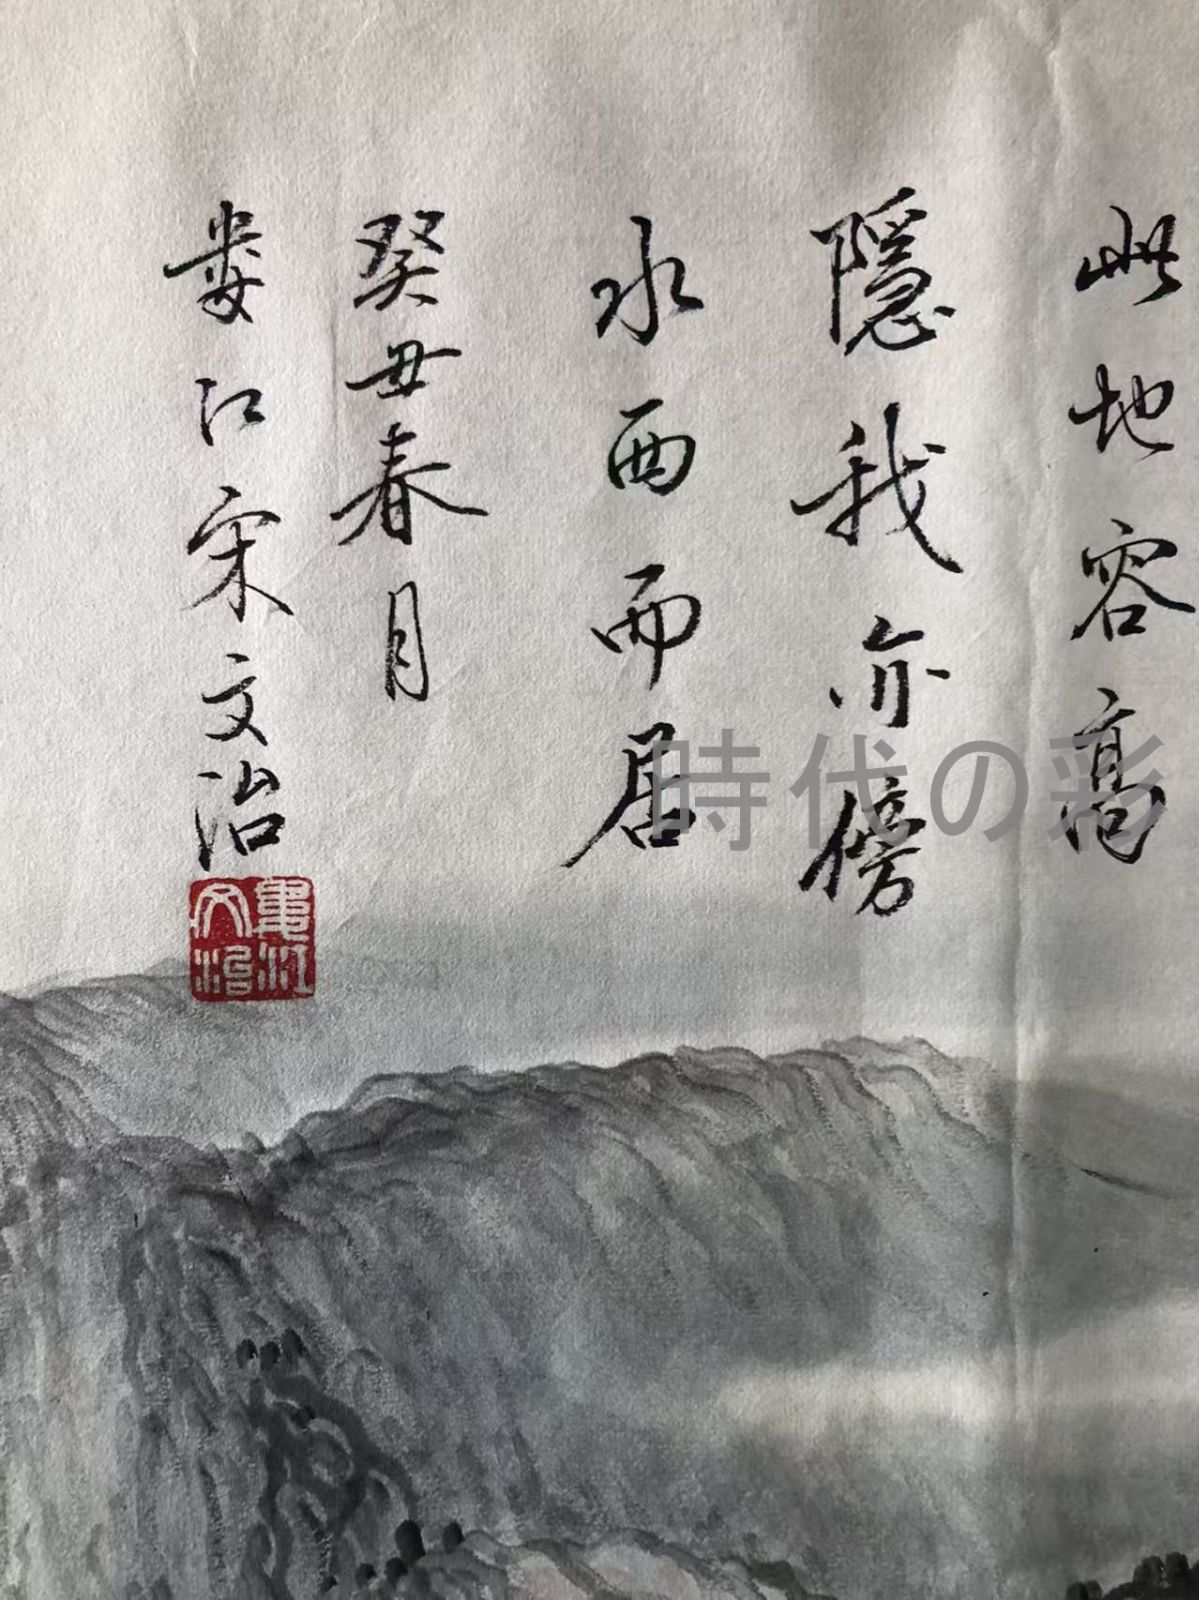 此地容高
隱我亦傍
水西而居
癸丑春月
婁江宋文治
婁江文治
時代の彩